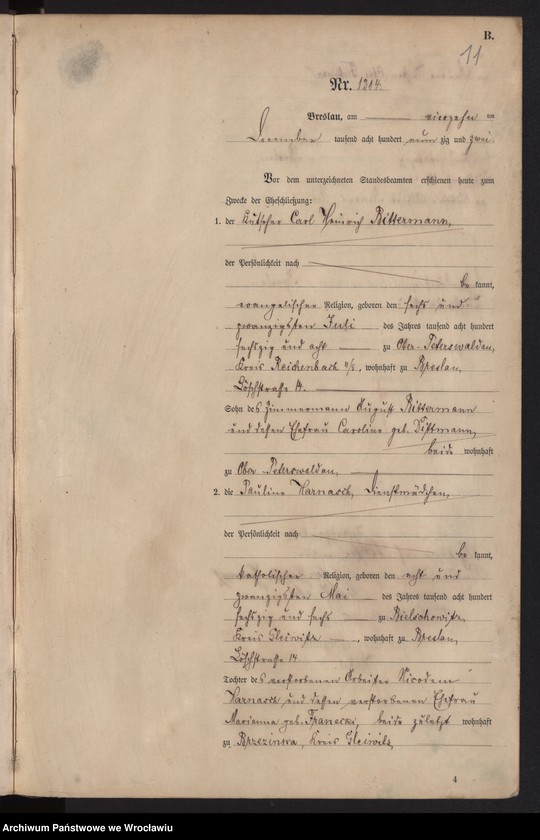 B.
11
Nr. 1204.
Breslau, am vierzehn ten
December tausend acht hundert neun zig und zwei.
Vor dem unterzeichneten Standesbeamten erschienen heute zum
Zwecke der Eheschließung:
1. der Kutscher Carl Heinrich Bittermann,
der Persönlichkeit nach
be kannt,
evangelischer Religion, geboren den sechs und
zwanzigsten Juli des Jahres tausend acht hundert
sechszig und acht zu Ober-Peterswaldau,
Kreis Reichenbach, wohnhaft zu Breslau,
Löschstraße 14.
Sohn des Zimmermann August Bittermann
und dessen Ehefrau Caroline geb. Dittmann,
beide wohnhaft
zu Ober-Peterswaldau,
2. die Pauline Harnasch, Dienstmädchen,
der Persönlichkeit nach
be kannt,
katholischer Religion, geboren den acht und
zwanzigsten Mai des Jahres tausend acht hundert
sechszig und sechs zu Bielschowitz,
Kreis Gleiwitz, wohnhaft zu Breslau,
Löschstraße 14
Tochter des verstorbenen Arbeiter Nicodem
Harnasch und dessen verstorbenen Ehefrau
Marianna geb. Franecki, beide zuletzt wohnhaft
zu Brzezinka, Kreis Gleiwitz,
4
Archiwum Państwowe we Wrocławiu